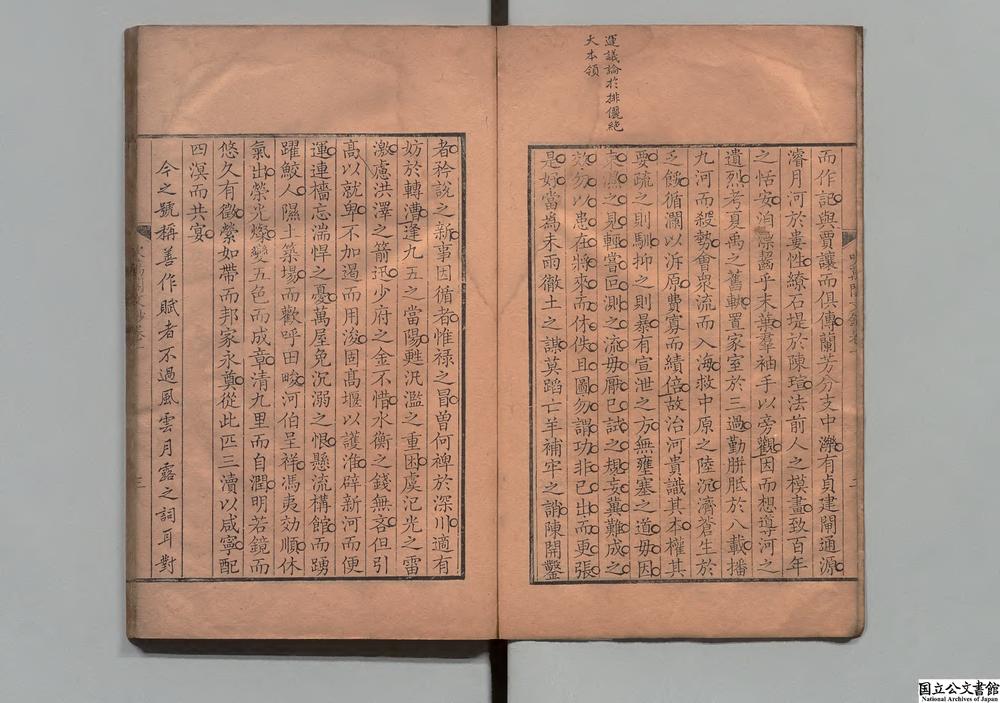 運議論於排儷絶
大本領
而作記與賈讓而俱傳蘭芳分支中濼有貞建閘通源
濬月河於婁性繚石堤於陳瑄法前人之模畫致百年
之恬安洎禜齧乎末葉羣袖手以旁觀因而想導河之
遺烈考夏禹之舊軌置家室於三過勤胼胝於八載播
九河而殺勢會衆流而入海救中原之陸沉濟蒼生於
乏餒循瀾以泝原費寡而績倍故治河貴識其本權其
要疏之則馴抑之則暴有宣泄之方無壅塞之道毋因
之見輕嘗回測之流毋厭已試之規妄冀難成之
勿以患在將來而休佚且圖勿謂功非已出而更張
是好當為未雨徹土之謀莫蹈亡羊補牢之誚陳開鑿
者矜說之新事因循者惟禄之冒曽何裨於深川適有
妨於轉漕逢九五之當陽甦汎濫之重困虞汜光之雷
激慮洪澤之箭迅少府之金不惜水衡之錢無吝但引
髙以就卑不加遏而用浚固髙堰以護淮辟新河而便
運連檣忘湍悍之憂萬屋免沉溺之恨懸流構館而踴
躍鮫人隰土築場而歡呼田畯河伯呈祥馮夷効順休
氣出榮光燦變五色而成章清九里而自潤明若鏡而
悠久有徵縈如帶而邦家永奠從此匹三瀆以咸寧配
四溟而共宴
今之號稱善作賦者不過風雲月露之詞耳對
三
国立公文書館
National Archives of Japan